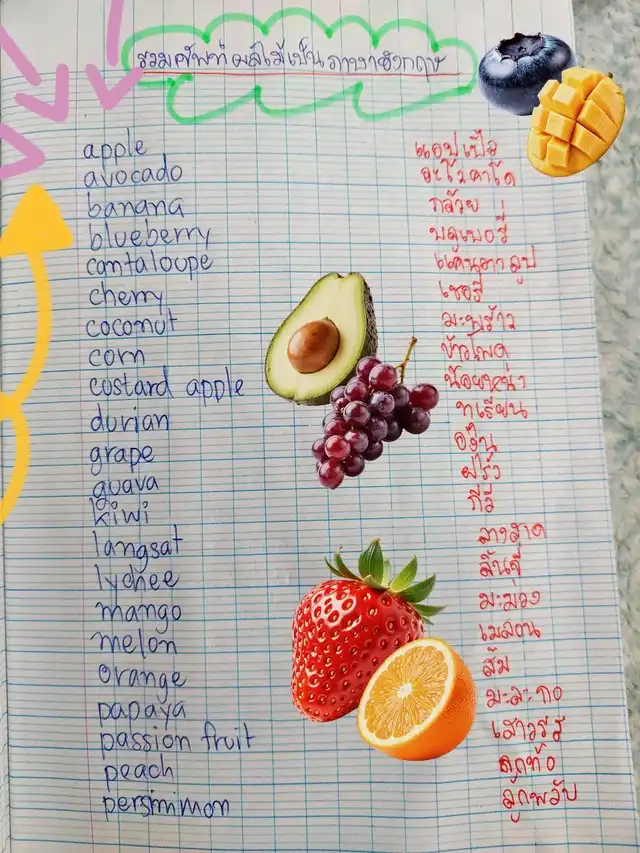 รวมศัพท์ ผลไม้เป็น ภาษาอังกฤษ
apple แอปเปิ้ล
avocado อะโวคาโด
banana กล้วย
blueberry บลูเบอรี่
cantaloupe แคนตาลูป
cherry เชอรี่
coconut มะพร้าว
corn ข้าวโพด
costard apple น้อยหน่า
durian ทุเรียน
grape องุ่น
guava ฝรั่ง
kiwi กีวี
langsat ลางสาด
lychee ลิ้นจี่
mango มะม่วง
melon เมลอน
orange ส้ม
papaya มะละกอ
passion fruit เสาวรส
peach ลูกท้อ
persimmon ลูกพลับ